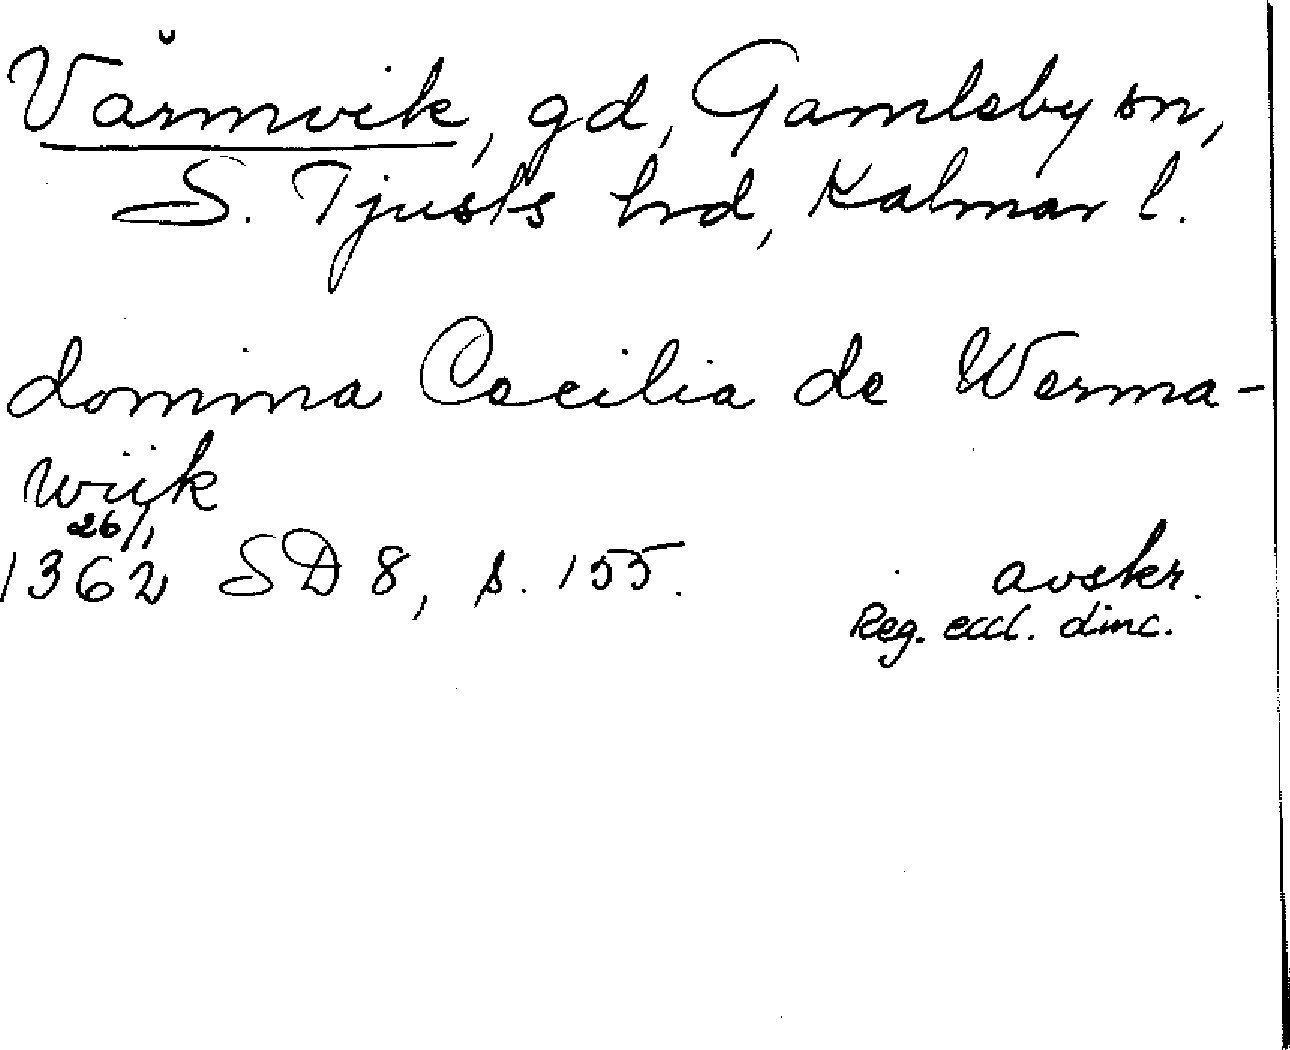 Värmvik, gd, Gamleby sn,
S. Tjusts hrd, Kalmar l.
domina Cecilia de Werma-
wiik
26/1
1362 SD 8, s. 155.
avskr.
Reg. eccl. linc.